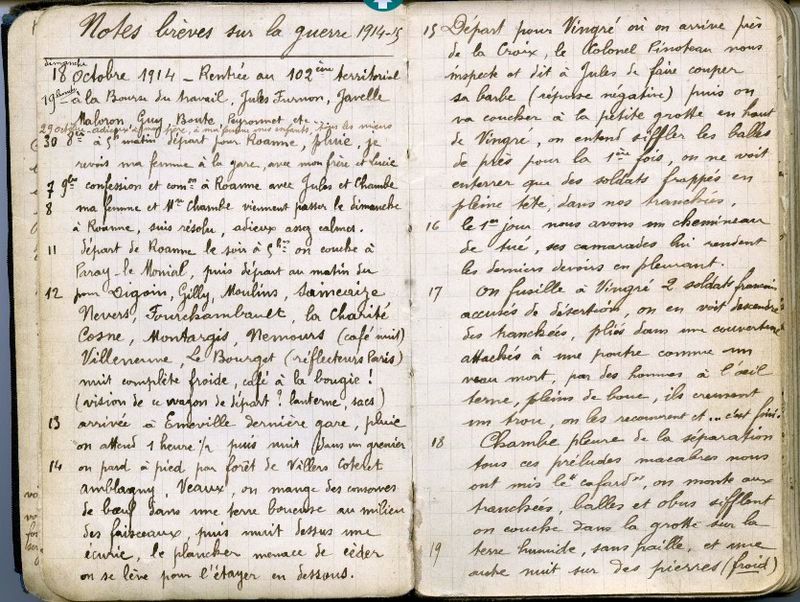 Notes brèves sur la guerre 1914-15
dimanche
18 Octobre 1914 - Rentrée au 102ème territorial
19 lundi - à la Bourse du travail, Jules Furnon, Javelle
Maloron, Guy, Boute, Peyronnet etc...
29 octobre - adieux à mon père, à ma femme mes enfants, tous les miens
30 8bre à 5h matin départ pour Roanne, pluie, je
revois ma femme à la gare, avec mon frère et Lucie
7 9bre confession et comon à Roanne avec Jules et Chambe
8 ma femme et Mme Chambe viennent passer le dimanche
à Roanne, suis résolu, adieux assez calmes.
11 départ de Roanne le soir à 5hres on couche à
Paray-le-Monial, puis départ au matin du
12 pour Digoin, Gilly, Moulins, Saincaize
Nevers, Fourchambault, la Charité
Cosne, Montargis, Nemours (café nuit)
Villeneuve, Le Bourget (réflecteurs Paris)
nuit complète froide, café à la bougie !
(vision de ce wagon de départ ? lanterne, sacs)
13 arrivée à Emeville dernière gare, pluie
on attend 1 heure 1/2 puis nuit dans un grenier
14 on part à pied par forêt de Villers Coteret
amblagny, Veaux, on mange des conserves
de bœuf dans une terre boueuse au milieu
des faisceaux, puis nuit dessus une
écurie, le plancher menace de céder
on se lève pour l'étayer en dessous.
15 Départ pour Vingré où on arrive près
de la Croix, le Colonel Pinoteau nous
inspecte et dit à Jules de faire couper
sa barbe (réponse négative) puis on
va coucher à la petite grotte en haut
de Vingré, on entend siffler les balles
de près pour la 1ère fois, on ne voit
enterrer que des soldats frappés en
pleine tête, dans nos tranchées,
16 le 1er jour nous avons un chemineau
de tué, ses camarades lui rendent
les derniers devoirs en pleurant.
17 On fusille à Vingré 2 soldats français
accusés de désertion, on en voit descendre
des tranchées, pliés dans une couverture
attachés à une poutre comme un
veau mort, par des hommes à l'œil
terne, pleins de boue, ils creusent
un trou, on les recouvrent et ... c'est fini.
18 Chambe pleure de la séparation
tous ces préludes macabres nous
ont mis le "cafard", on monte aux
tranchées, balles et obus sifflent
on couche dans la grotte sur la
19 terre humide, sans paille, et une
autre nuit sur des pierres (froid)